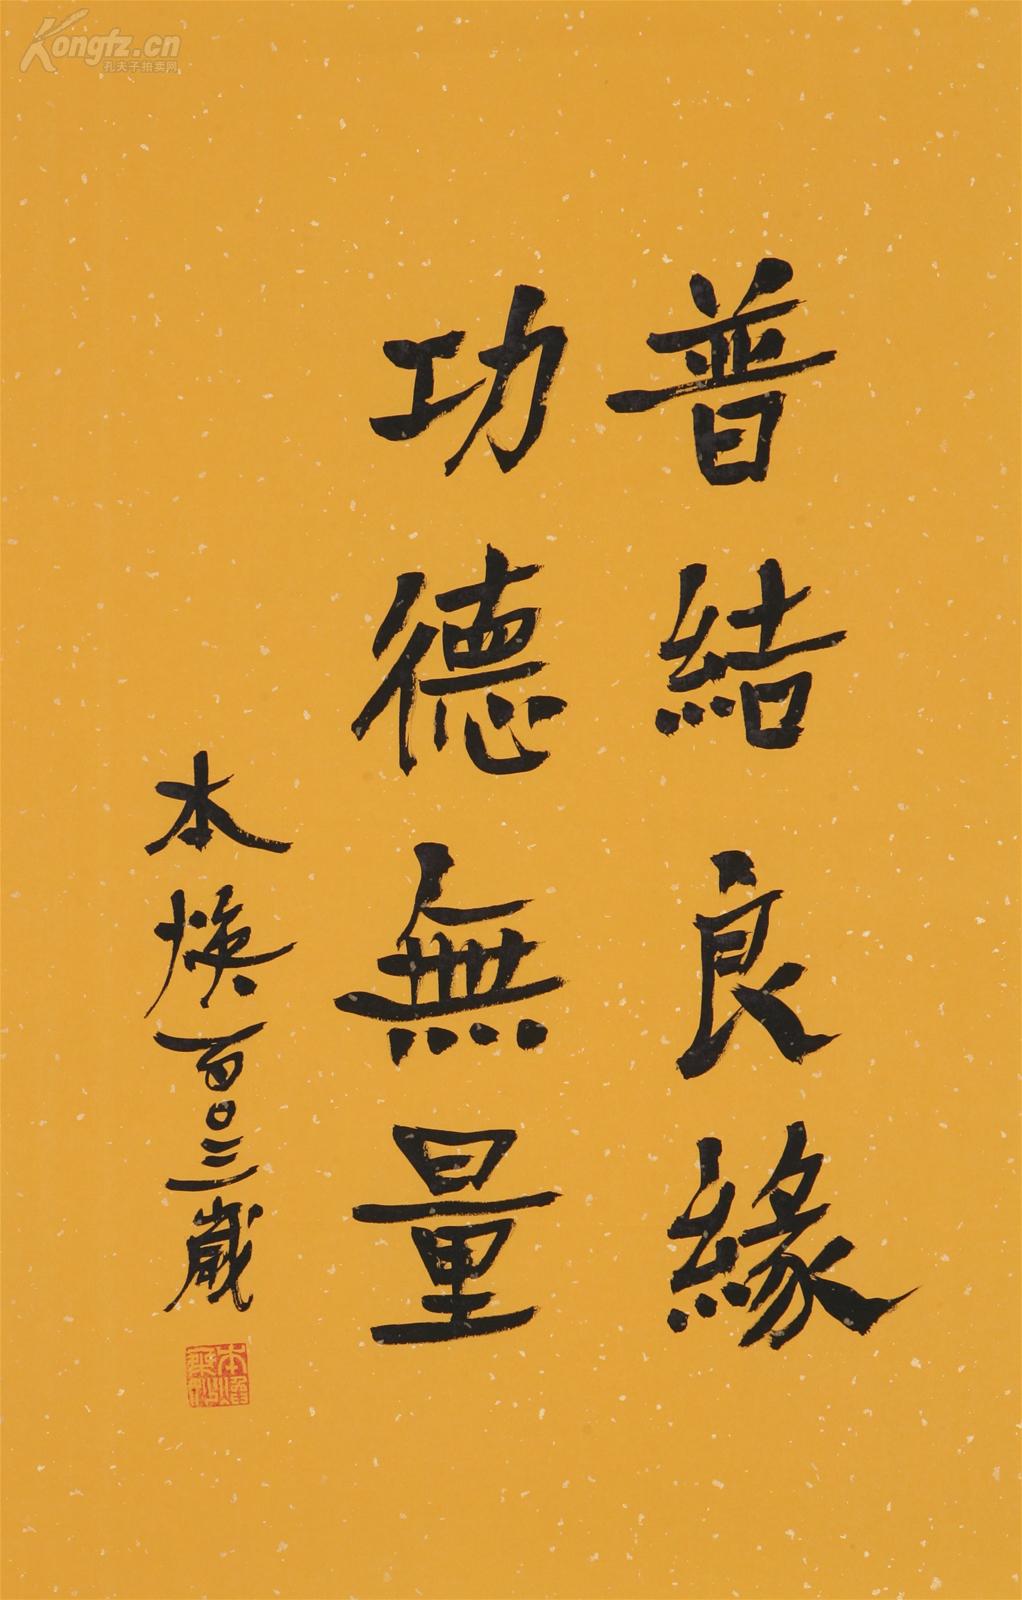 普結良緣
功德無量
本煥一百〇三歲
Kongfz.cn
孔夫子拍卖网